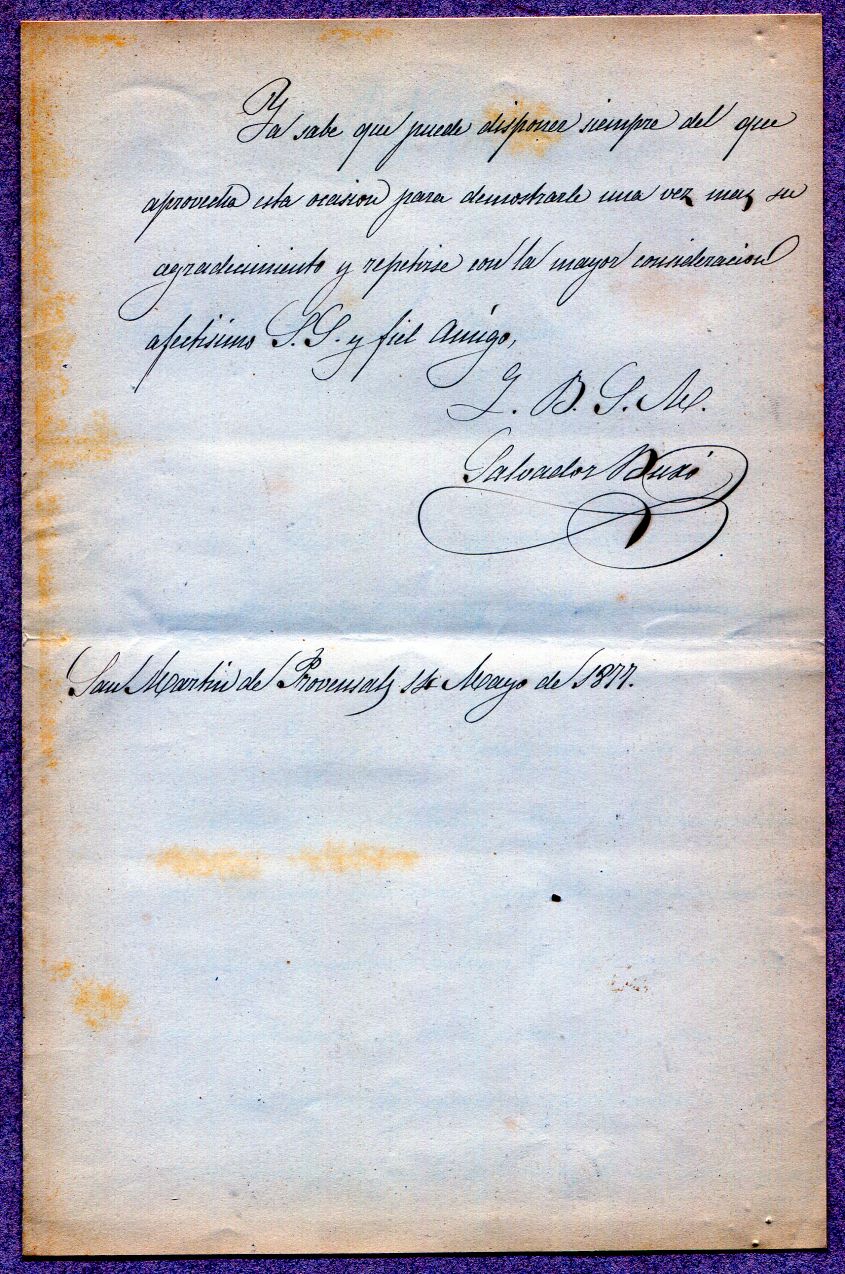 Ya sabe que puede disponer siempre del que
aprovecha esta ocasion para demostrarle una vez mas su
agradecimiento y repetirse con la mayor consideracion
afectisimo S.S. y fiel Amigo,
Q. B. S. M.
Salvador Buxó
San Martin de Provensals 14 Mayo de 1877.